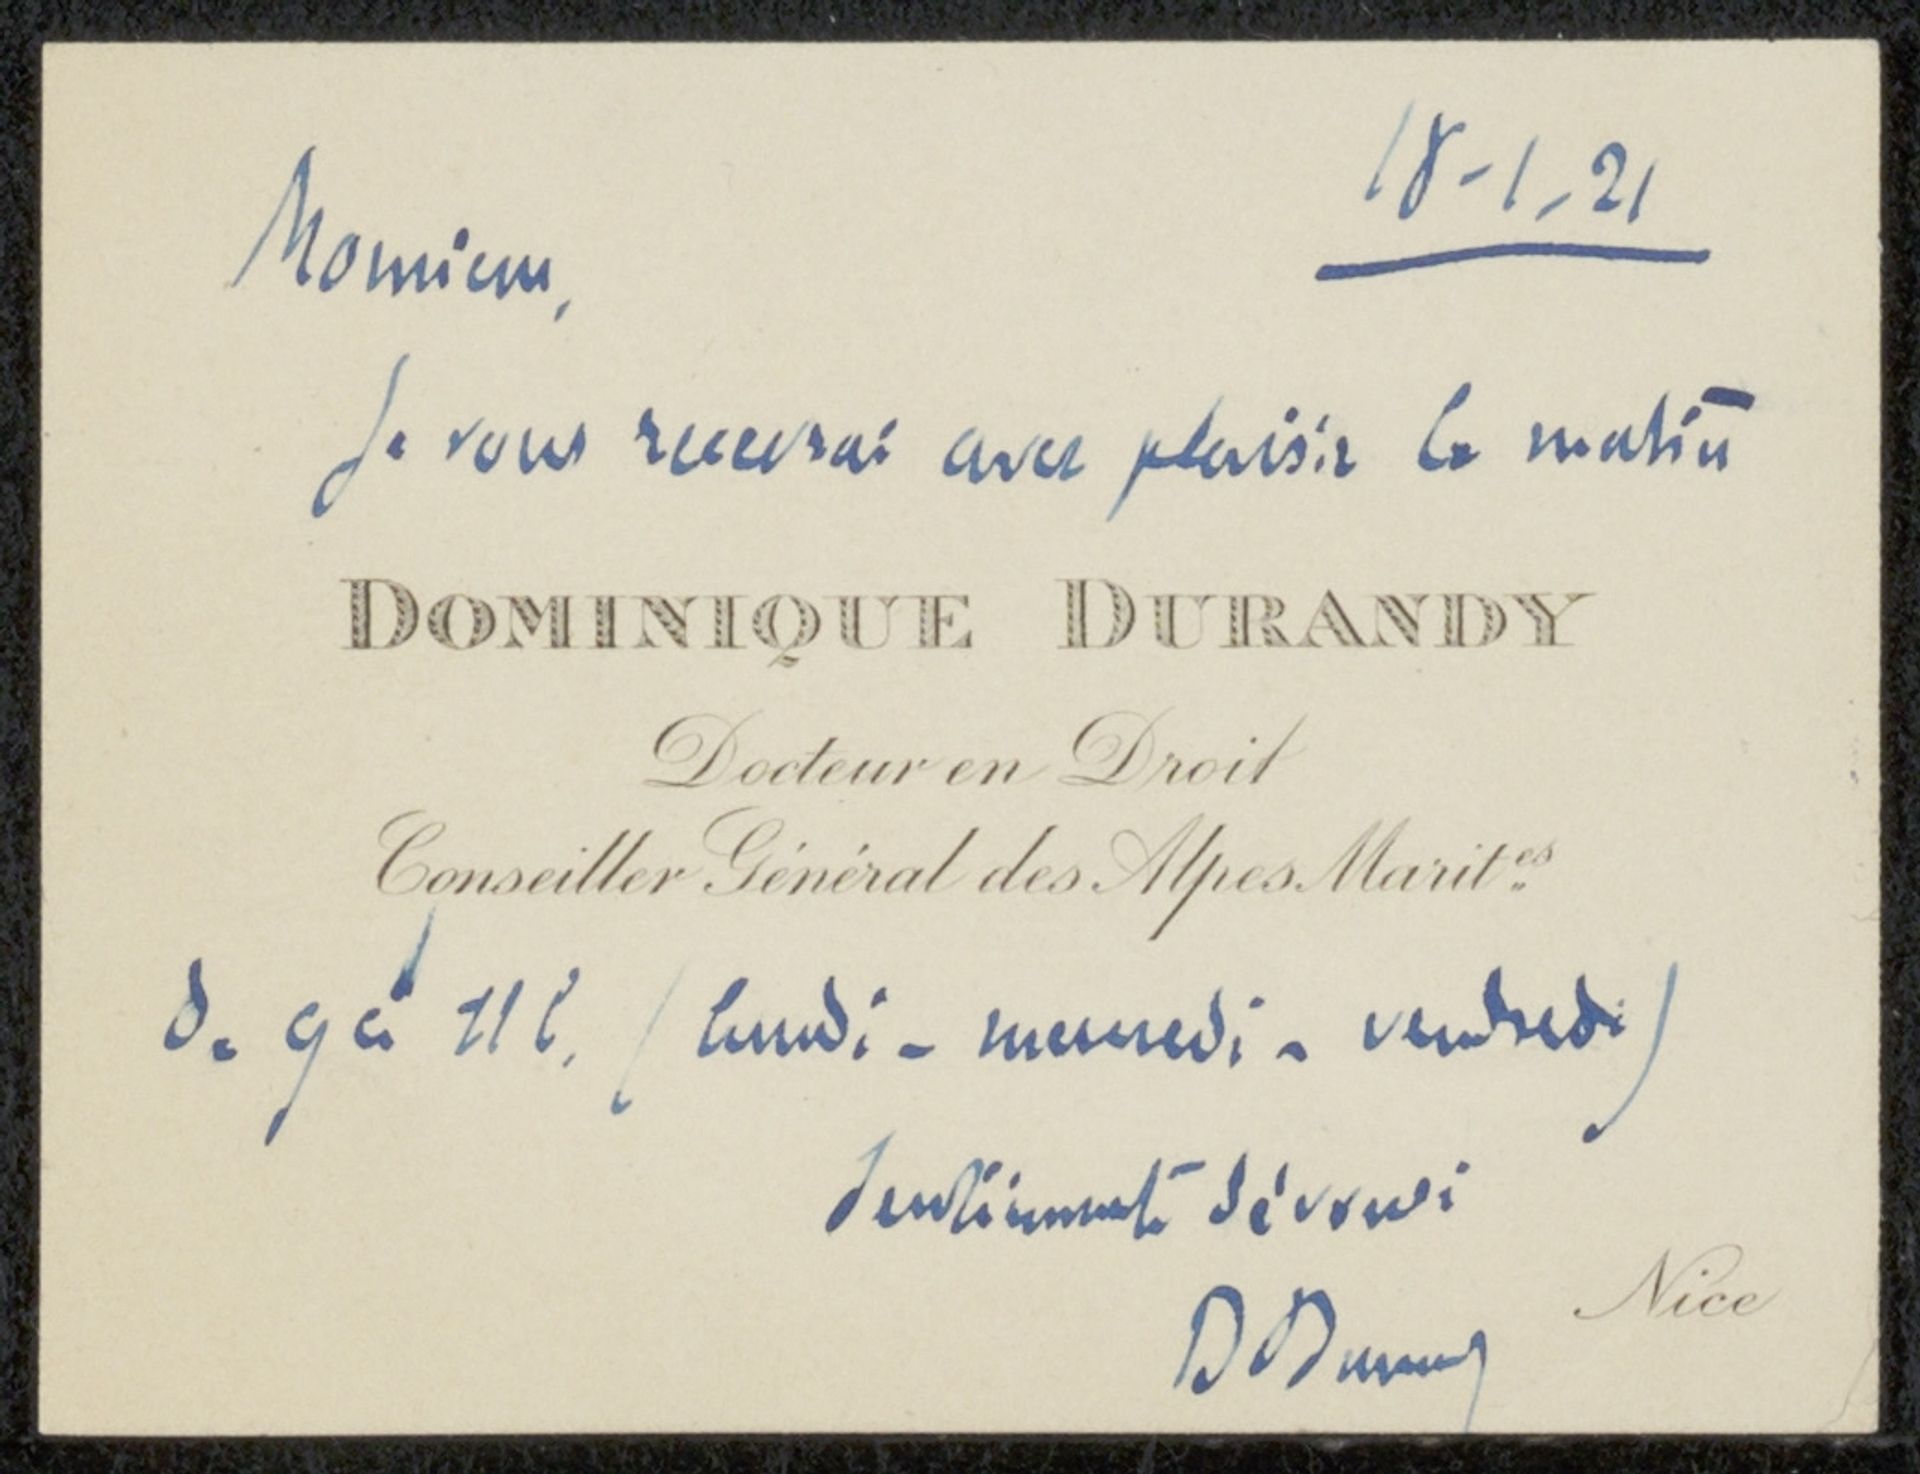 18-1-21
Monsieur,
Je vous recevrai avec plaisir le matin
DOMINIQUE DURANDY
Docteur en Droit
Conseiller Général des Alpes Marit.es
de 9 à 11 h. (lundi - mercredi - vendredi)
Sentiments dévoués
Nice
D Durandy